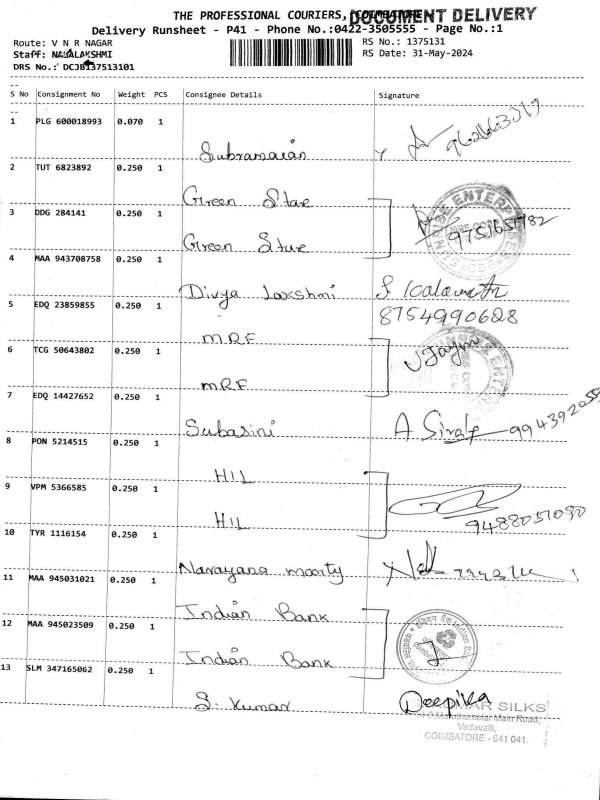 THE PROFESSIONAL COURIERS, COIMBATORE
DOCUMENT DELIVERY
Delivery Runsheet - P41 - Phone No.:0422-3505555 - Page No.:1
Route: V N R NAGAR
RS No.: 1375131
Staff: NAGALAKSHMI
RS Date: 31-May-2024
DRS No.: DCJB137513101
S No Consignment No Weight PCS Consignee Details Signature
1 PLG 600018993 0.070 1
Subramanian
2 TUT 6823892 0.250 1
Green Star
3 DDG 284141 0.250 1
Green Star
9751651782
4 MAA 943708758 0.250 1
Divya Lakshmi
8754990628
5 EDQ 23859855 0.250 1
MRF
6 TCG 50643802 0.250 1
MRF
7 EDQ 14427652 0.250 1
Subasini
A
8 PON 5214515 0.250 1
HIL
9 VPM 5366585 0.250 1
HIL
9488051090
10 TYR 1116154 0.250 1
Narayana moorty
11 MAA 945031021 0.250 1
Indian Bank
12 MAA 945023509 0.250 1
Indian Bank
13 SLM 347165062 0.250 1
S. Kumar
Deepika
SILKS
Main Road,
Vadavalli,
COIMBATORE - 641 041.